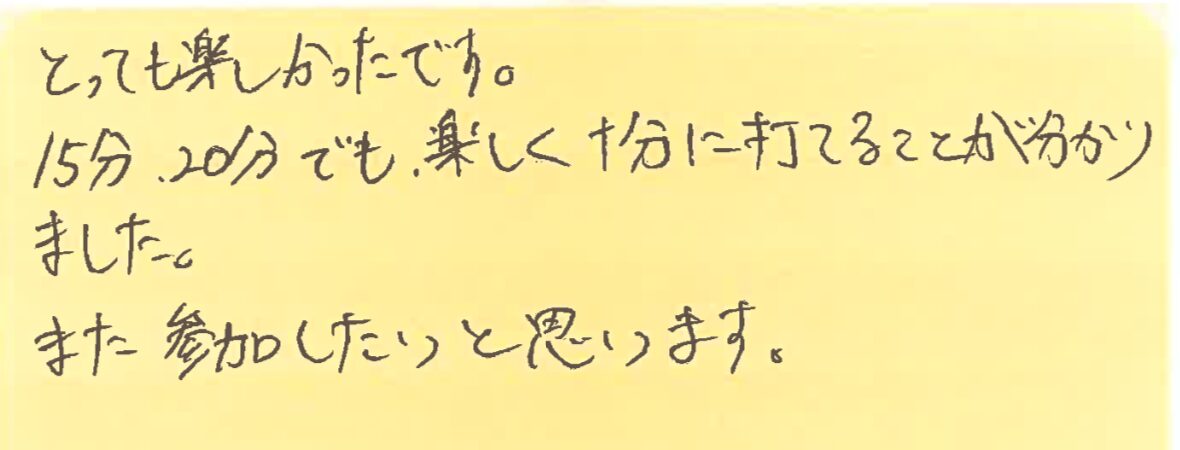 とっても楽しかったです。
15分、20分でも、楽しく十分に打てることが分かり
ました。
また参加したいと思います。